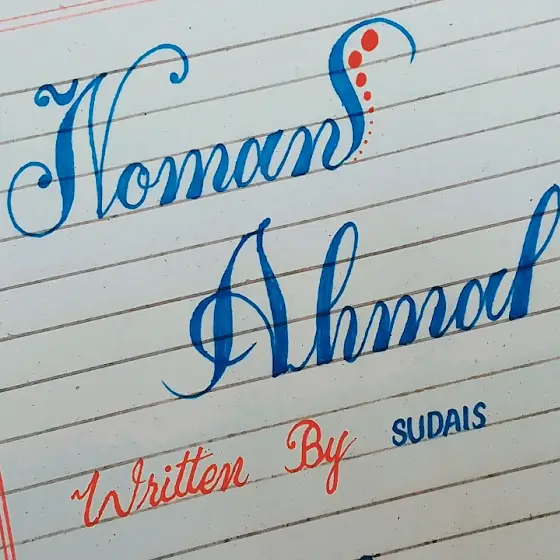 Noman
Ahmad
Written By SUDAIS